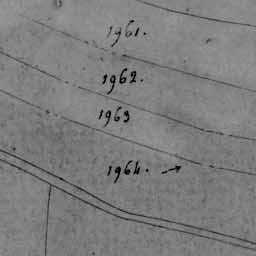 1961.
1962.
1963
1964.